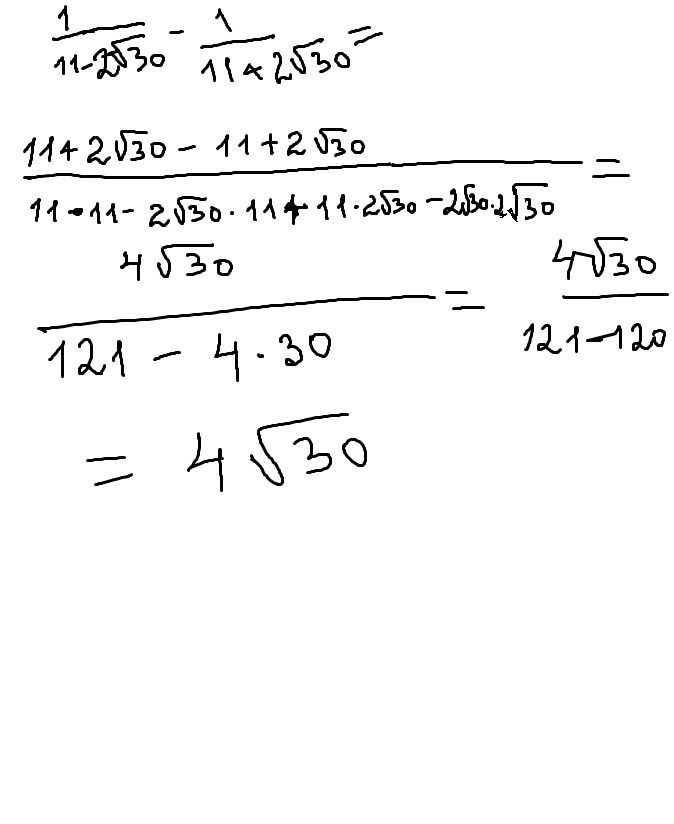 1/(11-2√30) - 1/(11+2√30) =
(11+2√30 - 11+2√30)/(11·11- 2√30·11+11·2√30-2√30·2√30) =
4√30/(121 - 4·30) = 4√30/(121-120)
= 4√30